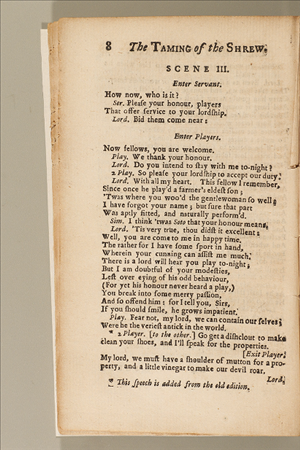 8 The TAMING of the SHREW.
SCENE III.
Enter Servant.
How now, who is it?
Ser. Please your honour, players
That offer service to your lordship.
Lord. Bid them come near:
Enter Players.
Now fellows, you are welcome.
Play. We thank your honour.
Lord. Do you intend to stay with me to-night?
2 Play. So please your lordship to accept our duty.
Lord. With all my heart. This fellow I remember,
Since once he play'd a farmer's eldest son;
'Twas where you woo'd the gentlewoman so well;
I have forgot your name; but sure that part
Was aptly fitted, and naturally perform'd.
Sim. I think 'twas Soto that your honour means.
Lord. 'Tis very true, thou didst it excellent:
Well, you are come to me in happy time,
The rather for I have some sport in hand,
Wherein your cunning can assist me much.
There is a lord will hear you play to-night;
But I am doubtful of your modesties,
Lest over eying of his odd behaviour,
(For yet his honour never heard a play,)
You break into some merry passion,
And so offend him: for I tell you, Sirs,
If you should smile, he grows impatient.
Play. Fear not, my lord, we can contain our selves;
Were he the veriest antick in the world.
* 2 Player. [to the other.] Go get a dishclout to make
clean your shoes, and I'll speak for the properties.
[Exit Player.
My lord, we must have a shoulder of mutton for a pro-
perty, and a little vinegar to make our devil roar.
Lord.
* This speech is added from the old edition.